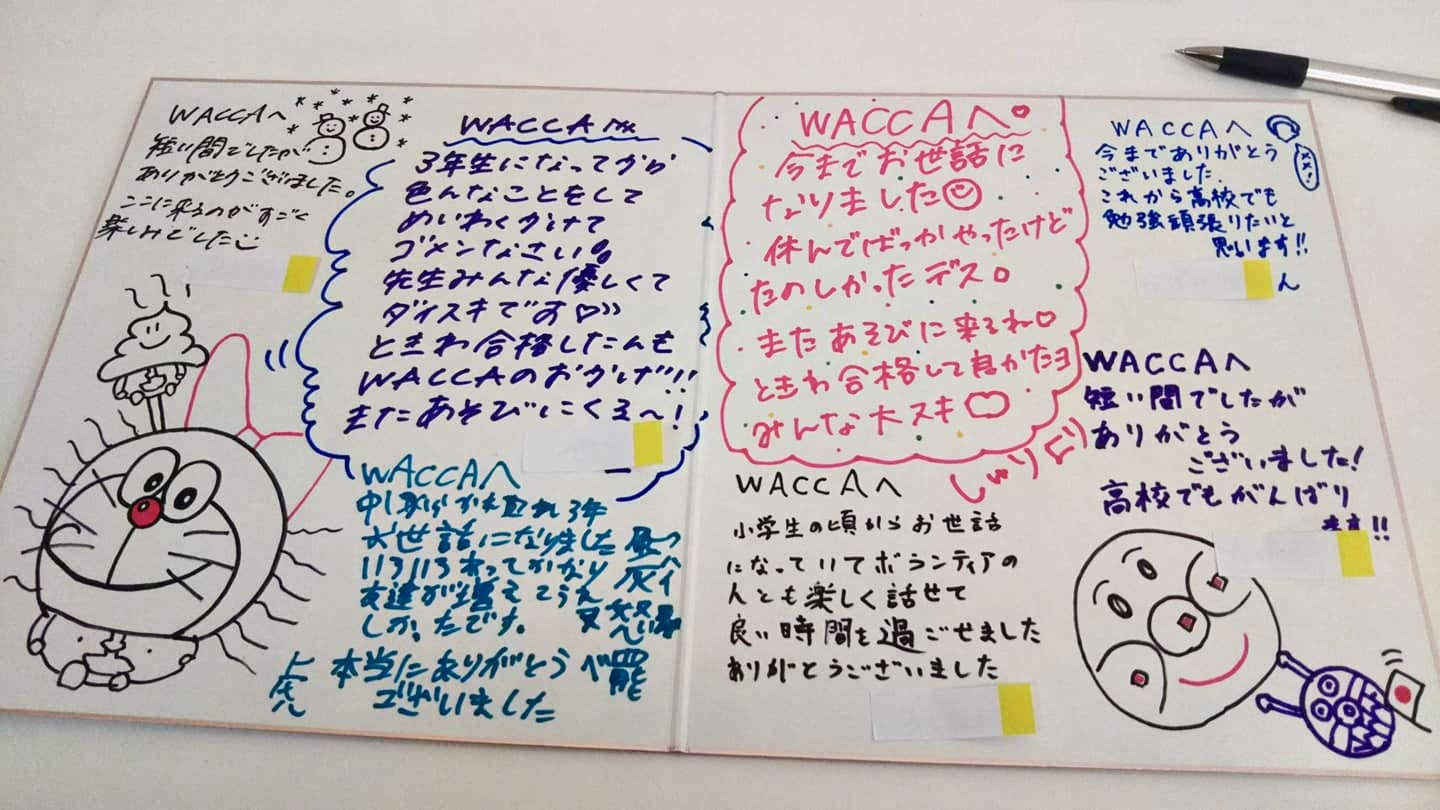 WACCAへ
短い間でしたが
ありがとうございました。
ここに来るのがすごく
楽しみでした
WACCAへ
3年生になってから
色んなことをして
めいわくかけて
ゴメンなさい
先生みんな優しくて
ダイスキです♡
ときわ合格したんも
WACCAのおかげ!!
またあそびにくる〜!
WACCAへ
3年
お世話になりました
いろいろあってかなり
友達が増えてうれ
しかったです。
本当にありがとう
ございました
WACCAへ♡
今までお世話に
なりました
休んでばっかやったけど
たのしかったデス。
またあそびに来るね♡
ときわ合格して良かたヨ
みんな大スキ♡
WACCAへ
小学生の頃からお世話
になっていてボランティアの
人とも楽しく話せて
良い時間を過ごせました
ありがとうございました
WACCAへ
今までありがとう
ございました.
これから高校でも
勉強頑張りたいと
思います!!
ん
WACCAへ
短い間でしたが
ありがとう
ございました!
高校でもがんばり
ます!!